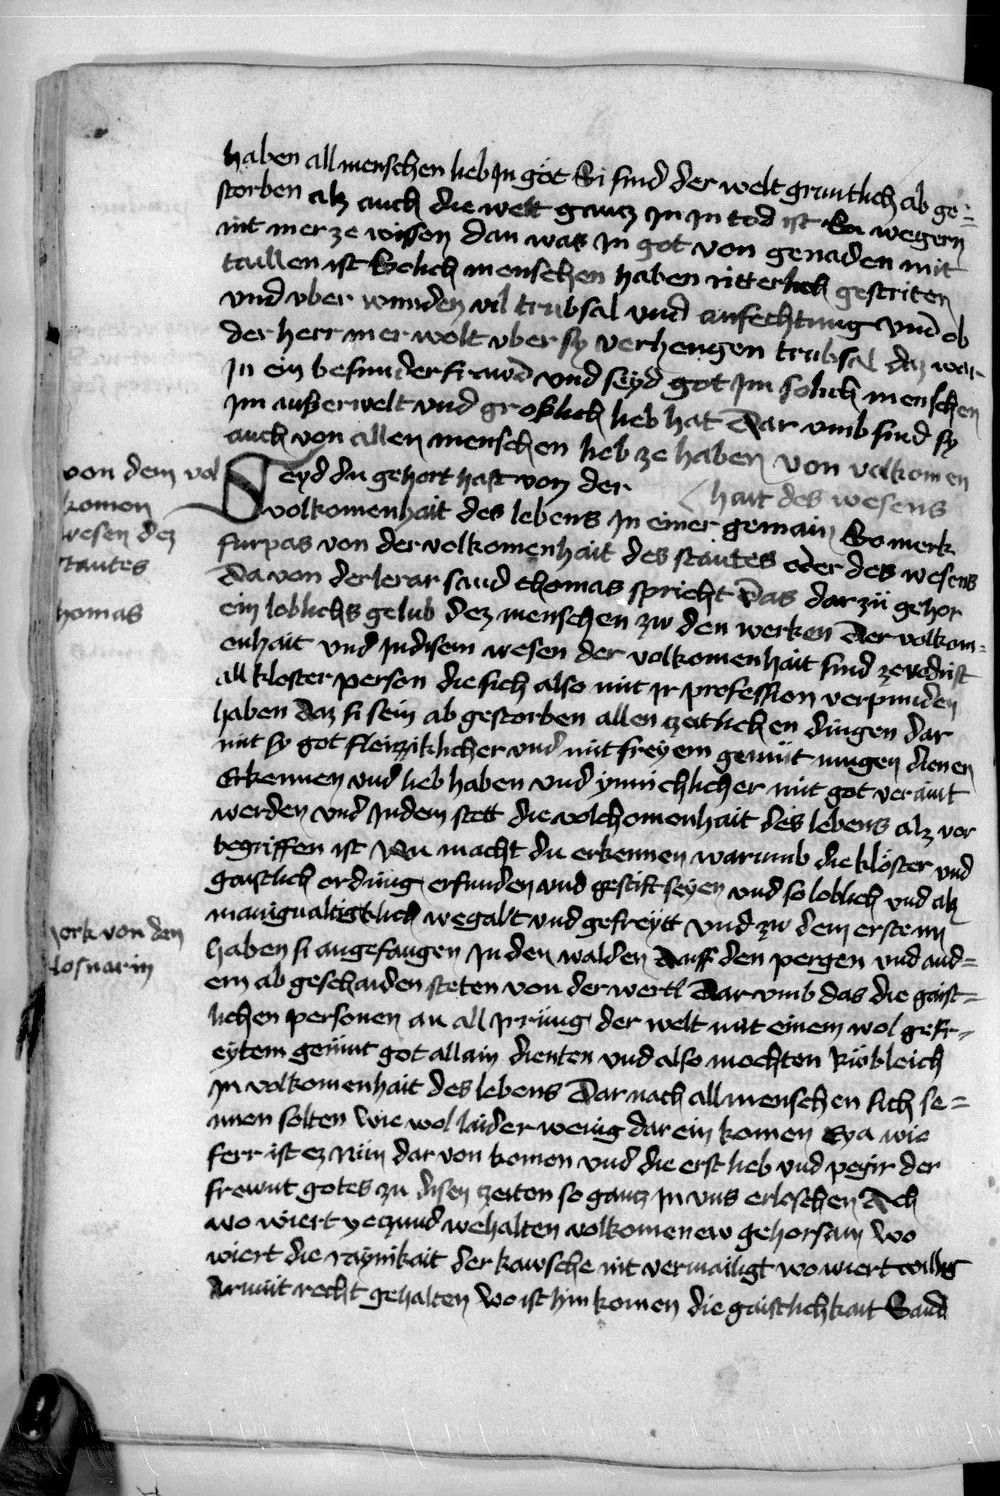 haben all menschen lieb Jn got Si sind der welt gruntlich ab ge=
storben alz auch die welt gancz Jn Jn tod ist Sii wegern
nit mer ze wissen dan was Jn got von genaden mit
taillen ist Solich menschen haben ritterlich gestriten
vnd vber wunden vil trubsal vnd anfechtung vnd ob
der herr mer wolt vber sy verhengen trubsal daz war
Jn ein besunder frawd vnd seyd got Jm solich menschen
Jm außerwelt vnd großlich lieb hat Dar vmb sind sy
auch von allen menschen lieb ze haben von volkomen
hait des wesens
Seyd du gehort hast von der
volkomenhait des lebens Jn einer gemain So merk
furpas von der volkomenhait des stautes oder des wesens
Da von der lerar sand thomas spricht Das dar zü gehor
ein loblichs gelub dez menschen zw den werken der volkom=
enhait vnd Jn disem wesen der volkomenhait sind ze vodrist
all kloster person die sich also mit Jr profession verpunden
haben Daz si sein ab gestorben allen zeitlichen dingen dar
mit sy got fleizziklicher vnd mit freyem gemüt mugen dienen
Erkennen vnd lieb haben vnd ynnichlicher mit got veraint
werden vnd Jn dem stett die volchomenhait des lebens alz vor
begriffen ist Nu macht du erkennen warumb die klöster vnd
gaistlich ordnüng erfunden vnd gestift seyen vnd so loblich vnd alz
manigualtigklich wegabt vnd gefreytt vnd zw dem ersten
haben si angefangen Jn den walden Auff den pergen vnd and=
ern ab geschaiden steten von der wertl Dar vmb das die gaist=
lichen personen an all Jrrüng der welt mit einem wol gefr=
eytem gemüt got allain dienten vnd also mochten Rübleich
Jn volkomenhait des lebens Dar nach all menschen sich se=
nnen solten wie wol laider wenig dar ein komen Eya wie
ferr ist ez nün dar von komen vnd die erst lieb vnd pegir der
frewnt gotes zu disen zeiten so gancz Jn vns erloschen Ach
wo wiert yeczund wehalten volkomenew gehorsam wo
wiert die raynikait der kawsche nit vermailigt wo wiert willig
Armüt recht gehalten wo ist hin komen die gaistlichkait Sand
von dem vol
komen
wesen dez
stautes
homas
merk von den
losnarin